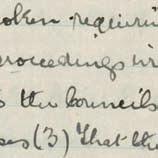 oken requirin
roceedings in
s the Councils
es (3) That the